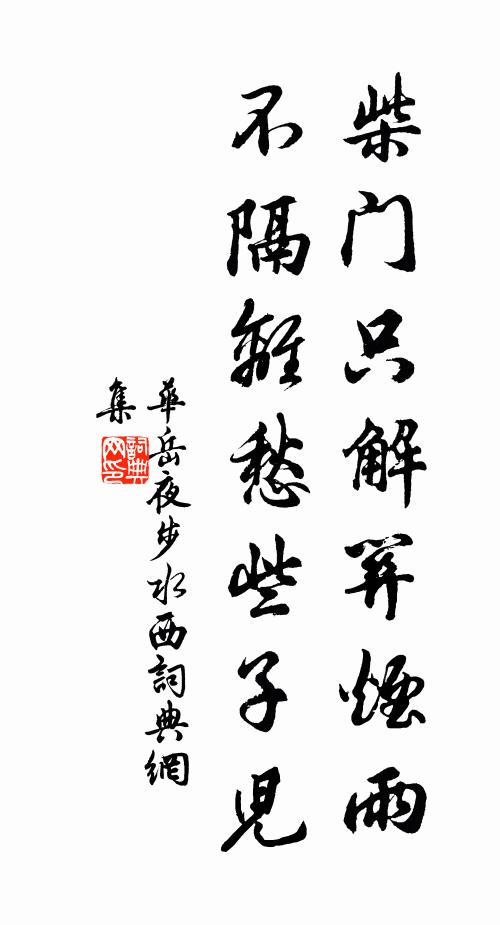 柴门只解關煙雨
不隔離愁些子兒
華岳夜步水西詞典網
集
詞典
网印